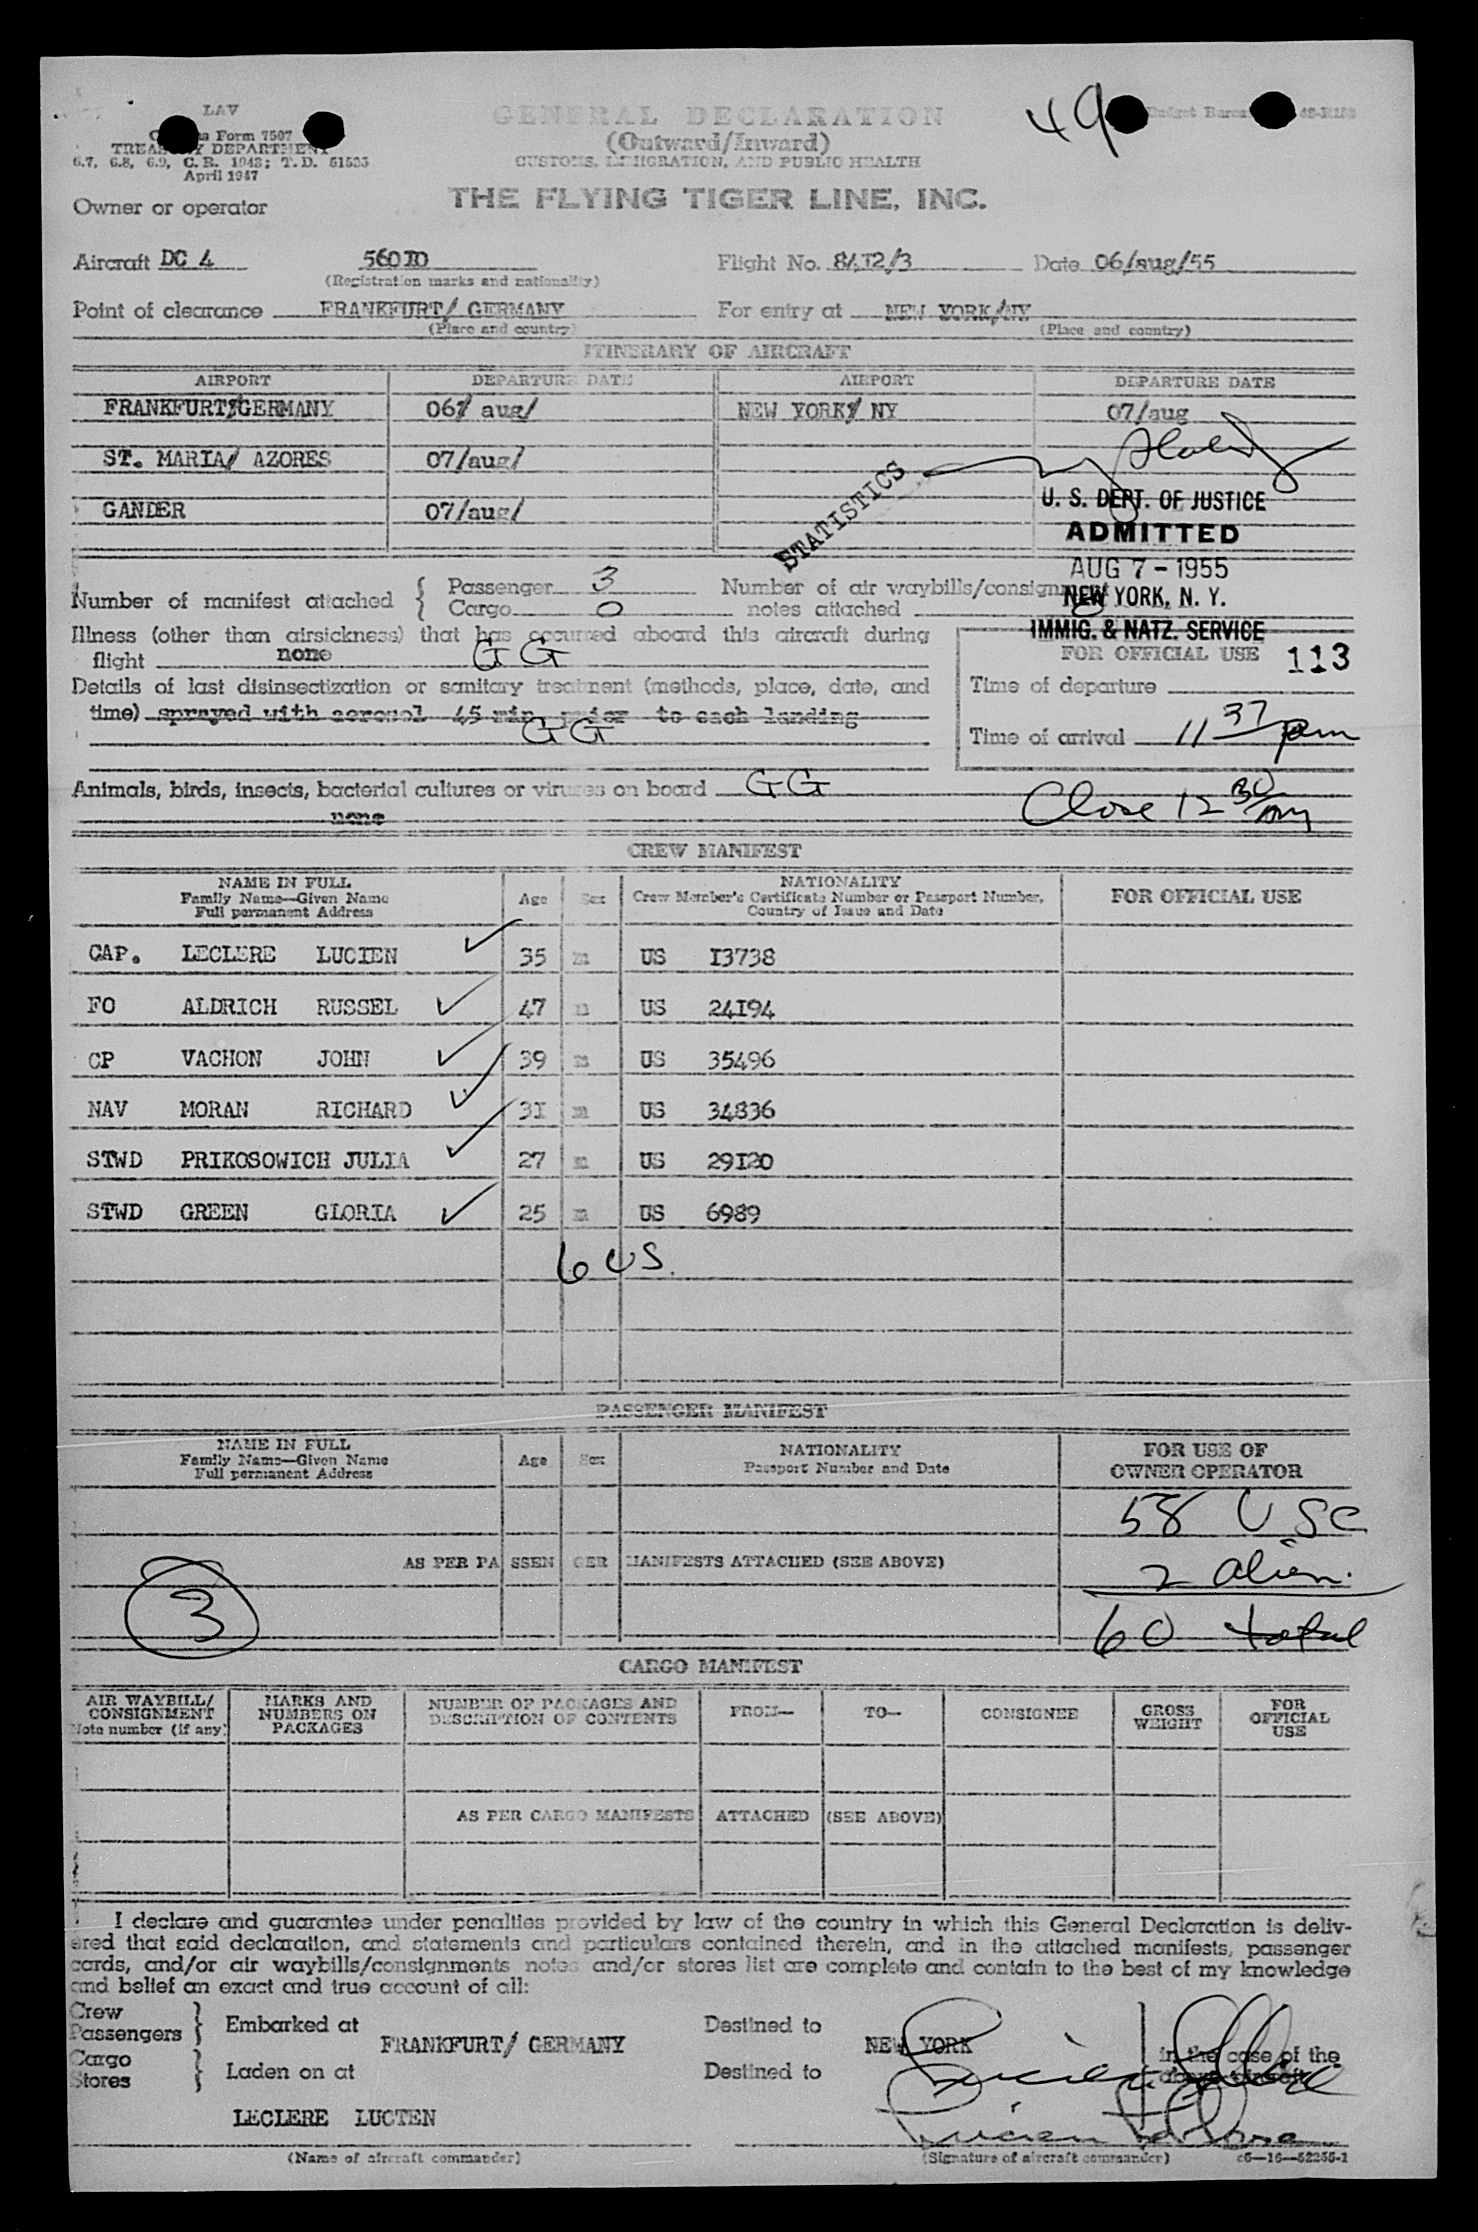 LAV
Form 7507
TREASURY DEPARTMENT
6.7, 6.8, 6.9, C.R. 1943; T.D. 51535
April 1947
GENERAL DECLARATION
(Outward/Inward)
CUSTOMS, IMMIGRATION, AND PUBLIC HEALTH
49
Owner or operator
THE FLYING TIGER LINE, INC.
Aircraft DC 4
(Registration marks and nationality)
Flight No. Date 06/aug/55
Point of clearance FRANKFURT/ GERMANY For entry at NEW YORK/NY
(Place and country) (Place and country)
ITINERARY OF AIRCRAFT
AIRPORT DEPARTURE DATE AIRPORT DEPARTURE DATE
FRANKFURT/GERMANY 06/ aug/ NEW YORK/ NY 07/aug
ST. MARIA/ AZORES 07/aug/
GANDER 07/aug/
STATISTICS
U. S. DEPT. OF JUSTICE
ADMITTED
AUG 7 - 1955
NEW YORK, N. Y.
IMMIG. & NATZ. SERVICE
113
Number of manifest attached { Passenger 3
Cargo 0
Number of air waybills/consignment
notes attached
Illness (other than airsickness) that has occurred aboard this aircraft during
flight none GG
Details of last disinsectization or sanitary treatment (methods, place, date, and
time) sprayed with aerosol 45 min prior to each landing
GG
FOR OFFICIAL USE
Time of departure
Time of arrival 11 37 pm
Animals, birds, insects, bacterial cultures or viruses on board GG
none
Close 12 30 am
CREW MANIFEST
NAME IN FULL
Family Name—Given Name
Full permanent Address
Age Sex
NATIONALITY
Crew Member's Certificate Number or Passport Number,
Country of Issue and Date
FOR OFFICIAL USE
CAP. LECLERE LUCIEN 35 m US I3738
FO ALDRICH RUSSEL 47 m US 24I94
CP VACHON JOHN 39 m US 35496
NAV MORAN RICHARD 3I m US 34836
STWD PRIKOSOWICH JULIA 27 m US 29I20
STWD GREEN GLORIA 25 m US 6989
6 US.
PASSENGER MANIFEST
NAME IN FULL
Family Name—Given Name
Full permanent Address
Age Sex
NATIONALITY
Passport Number and Date
FOR USE OF
OWNER OPERATOR
58 USC
AS PER PASSENGER MANIFESTS ATTACHED (SEE ABOVE) 2 alien.
3
60 total
CARGO MANIFEST
AIR WAYBILL/
CONSIGNMENT
Note number (if any)
MARKS AND
NUMBERS ON
PACKAGES
NUMBER OF PACKAGES AND
DESCRIPTION OF CONTENTS
FROM—
TO—
CONSIGNEE
GROSS
WEIGHT
FOR
OFFICIAL
USE
AS PER CARGO MANIFESTS ATTACHED (SEE ABOVE)
I declare and guarantee under penalties provided by law of the country in which this General Declaration is deliv-
ered that said declaration, and statements and particulars contained therein, and in the attached manifests, passenger
cards, and/or air waybills/consignments notes and/or stores list are complete and contain to the best of my knowledge
and belief an exact and true account of all:
Crew
Passengers } Embarked at FRANKFURT/ GERMANY Destined to NEW YORK
Cargo
Stores } Laden on at Destined to
in the case of the
above aircraft
LECLERE LUCIEN
(Name of aircraft commander) (Signature of aircraft commander)